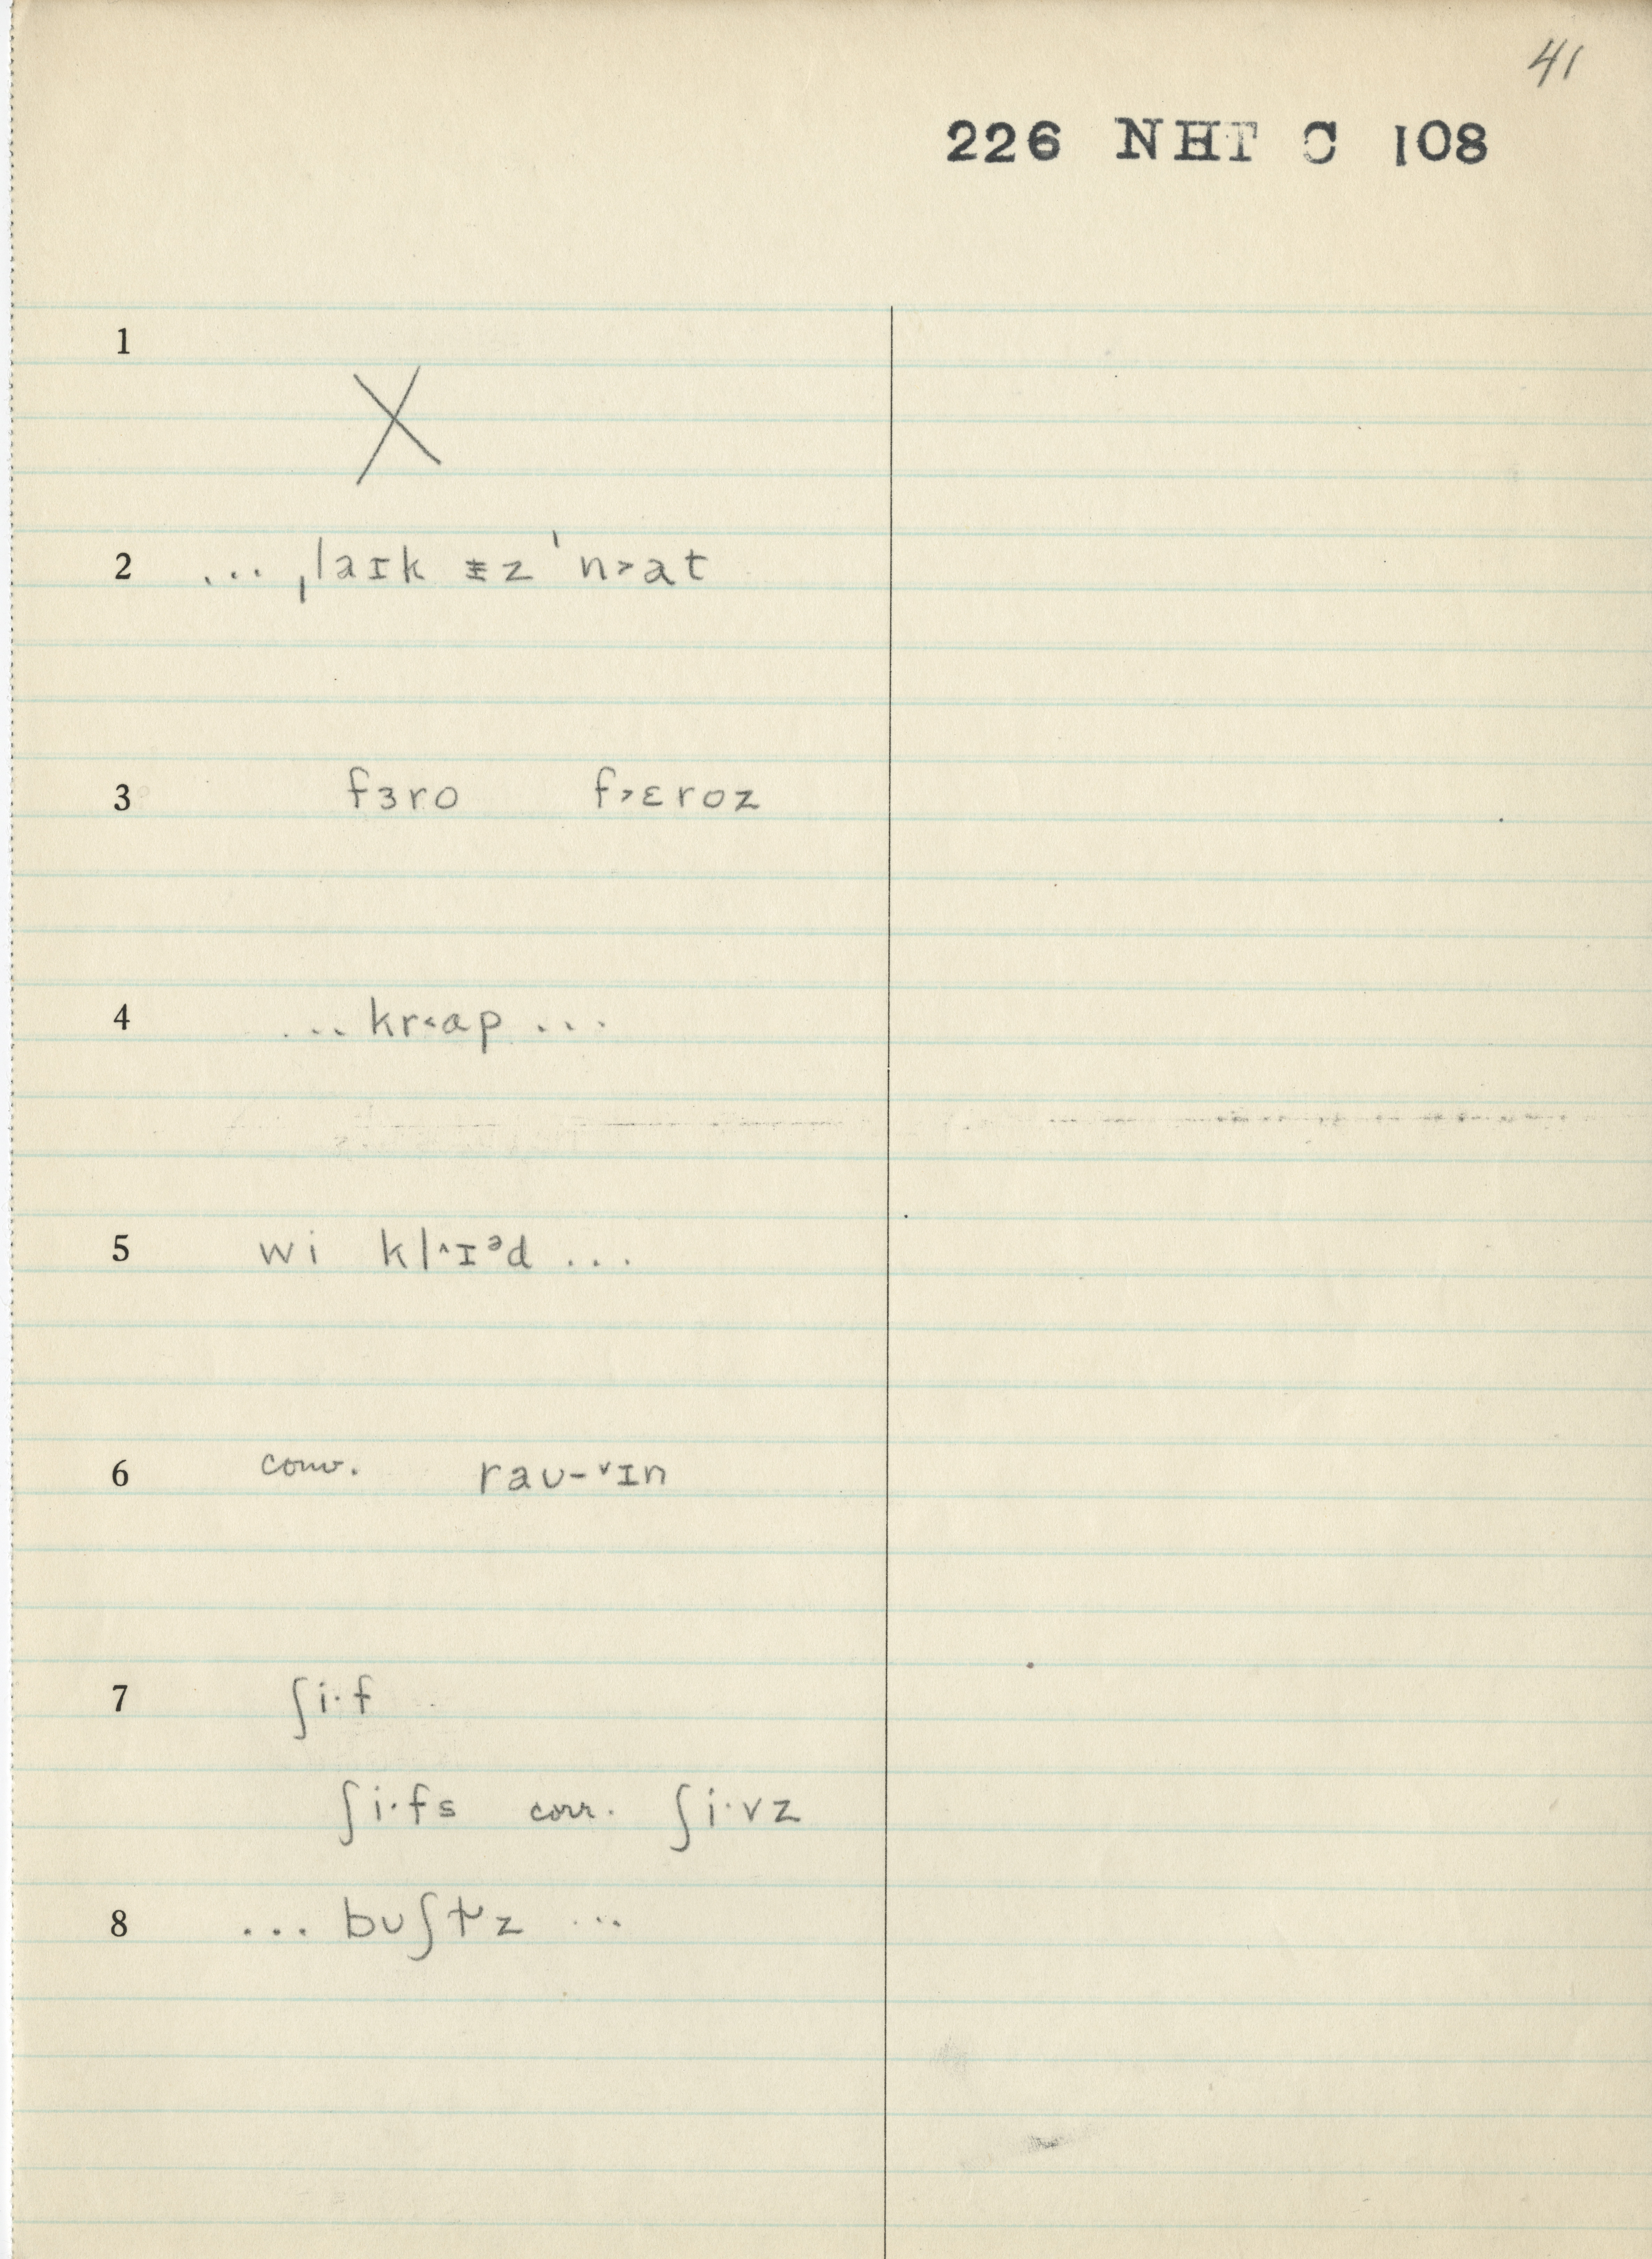 41
226 NHT C 108
1
X
2 ... ˌlaɪk ᵻz ˈn˃at
3 fɜro f˃ɛroz
4 ... kr˂ɑp ...
5 wi kl˄ɪᵊd ...
6 conv. raʊ-˅ɪn
7 ʃi·f
ʃi·fs corr. ʃi·vz
8 ... bʊʃɫ̵z ...